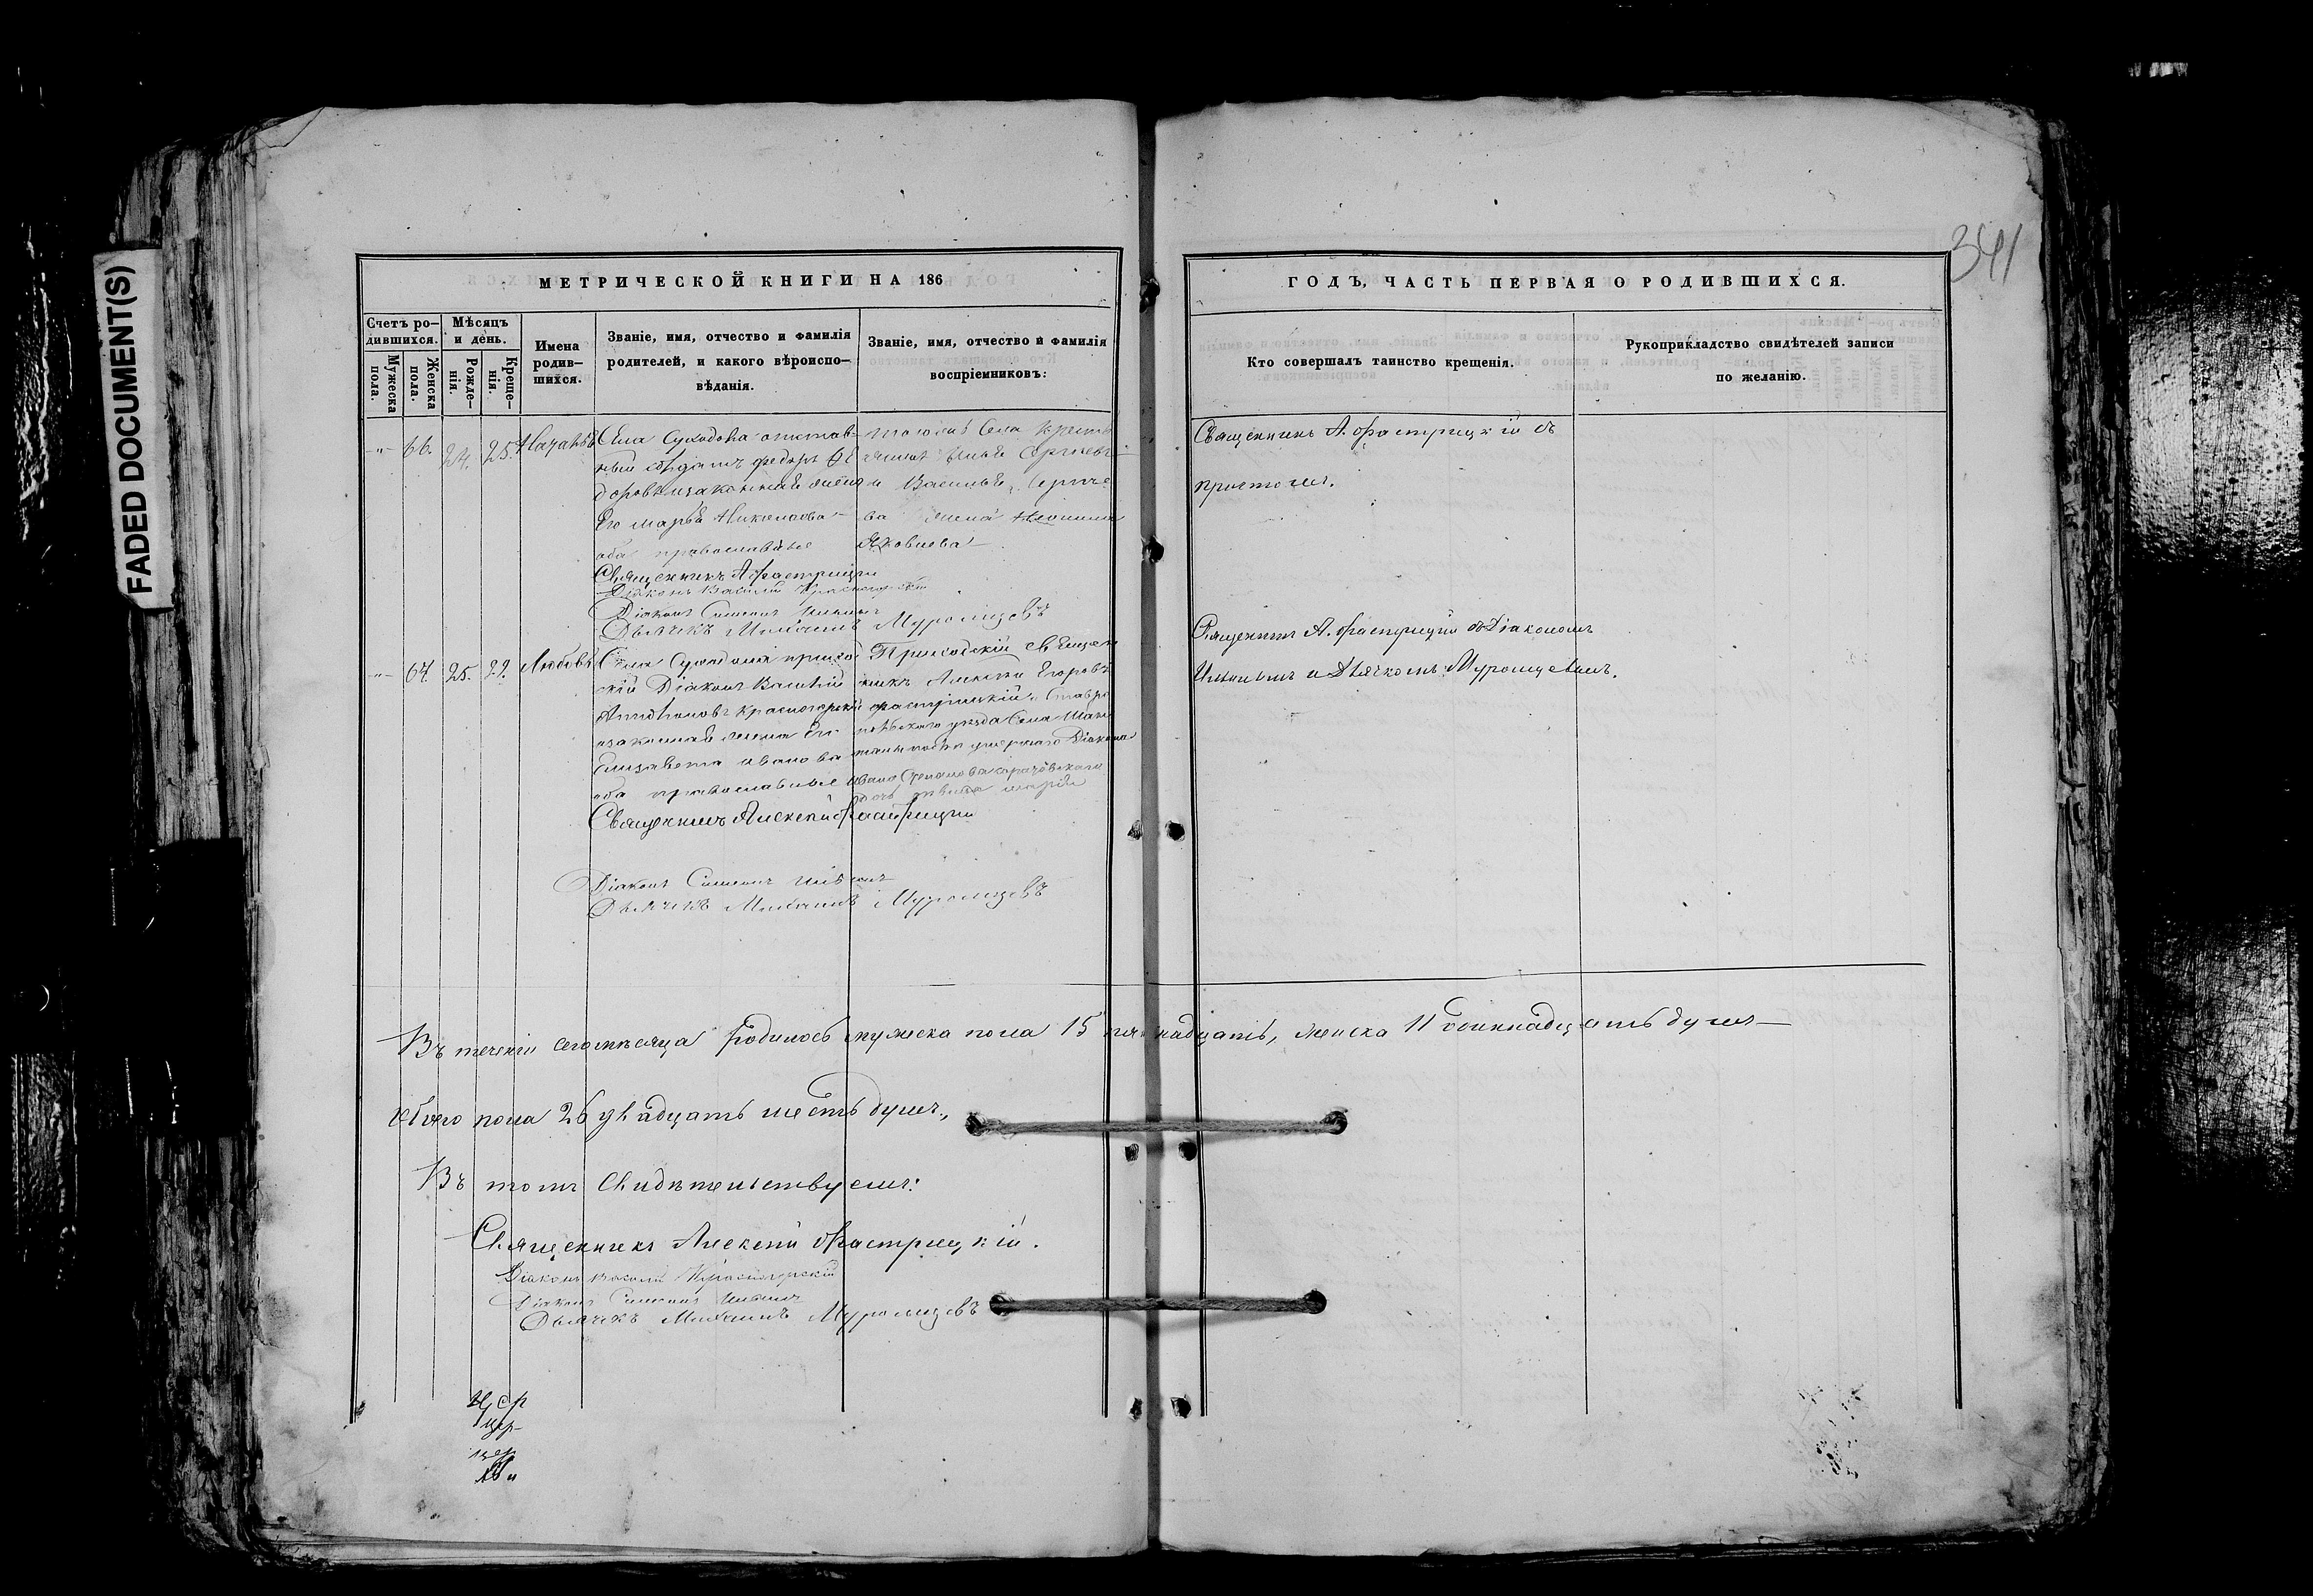 FADED DOCUMENT(S)
341
МЕТРИЧЕСКОЙ КНИГИ НА 186
ГОДЪ, ЧАСТЬ ПЕРВАЯ О РОДИВШИХСЯ.
Счетъ ро-
дившихся.
Мужска
пола.
Женска
пола.
Мѣсяцъ
и день.
Рожде-
нія.
Креще-
нія.
Имена
родив-
шихся.
Званіе, имя, отчество и фамилія
родителей, и какого вѣроиспо-
вѣданія.
Званіе, имя, отчество и фамилія
воспріемниковъ:
Кто совершалъ таинство крещенія.
Рукоприкладство свидѣтелей записи
по желанію.
66. 24. 25.
Села Суходола отстав-
его Марья Николаева
оба православные
Священникъ А. Фастрицкій
Діаконъ Василій Красногорскій
Діаконъ Симеонъ
Дьячекъ Михаилъ Муромцевъ
тогоже Села
Яковлева
Священникъ А. Фастрицкій съ
причтомъ.
67. 25. 29. Любовь
Села Суходола приход
скій Діаконъ Василій
Красногорскій
изаконная жена его
Елизавета Иванова
оба православные
Священникъ Алексей Фастрицкій
Приходскій Священ
никъ Алексей Егоровъ
Фастрицкій и Ставро
польскаго уѣзда Села
умершаго Діакона
Ивана Степанова
Діаконъ Симеонъ
Дьячекъ Михаилъ Муромцевъ
Священникъ А. Фастрицкій съ Діакономъ
и Дьячкомъ Муромцевымъ.
Въ теченіи сего мѣсяца родилось мужеска пола 15 пятнадцать, женска 11 одиннадцать душъ
обоего пола 26 двадцать шесть душъ,
Въ томъ свидѣтельствуемъ:
Священникъ Алексей Фастрицкій.
Діаконъ Василій Красногорскій
Діаконъ Симеонъ
Дьячекъ Михаилъ Муромцевъ